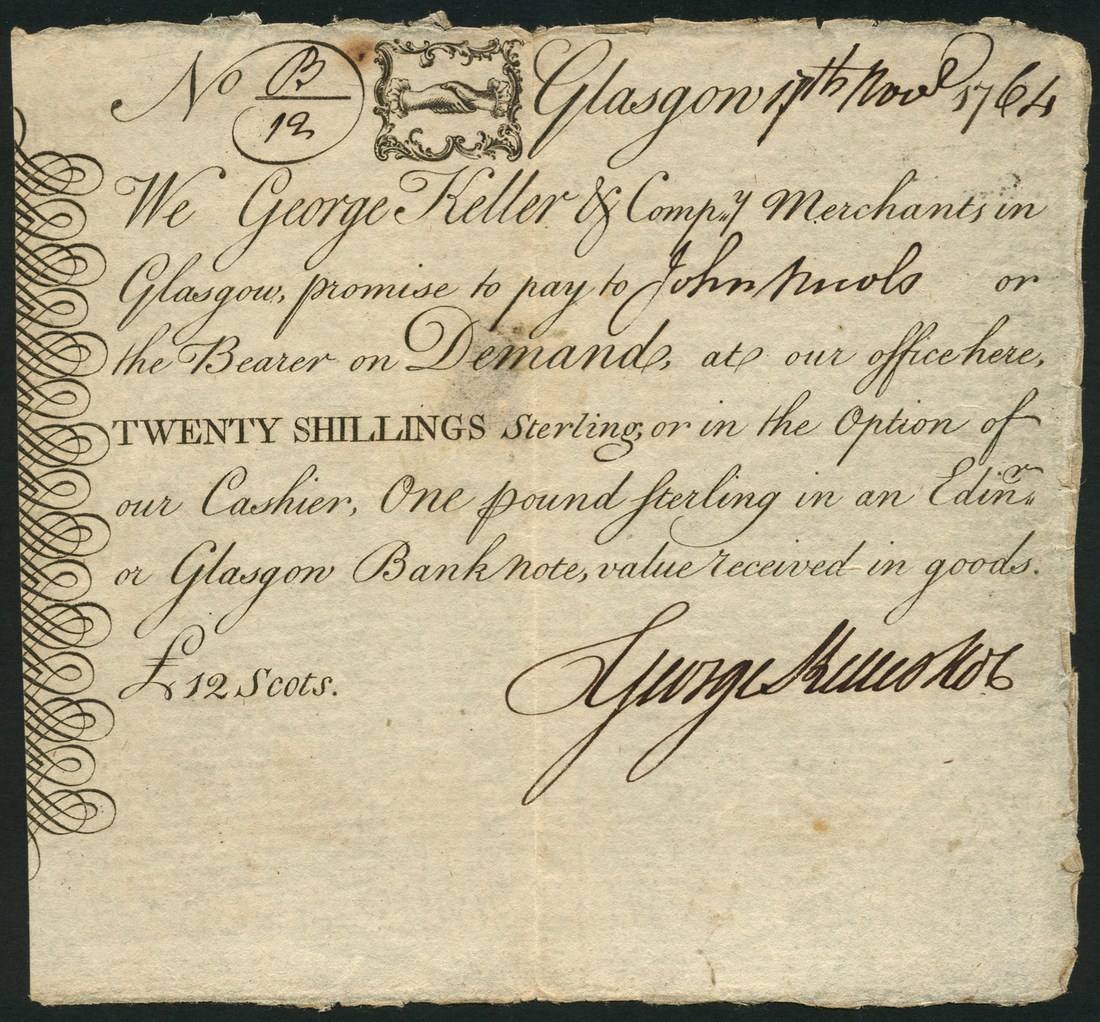 No B/12 Glasgow 17th Novr 1764
We George Keller & Comp.y Merchants in
Glasgow, promise to pay to John Nicols or
the Bearer on Demand, at our office here,
TWENTY SHILLINGS Sterling, or in the Option of
our Cashier, One pound sterling in an Edinr.
or Glasgow Bank note, value received in goods.
£12 Scots.
George Keller & Co